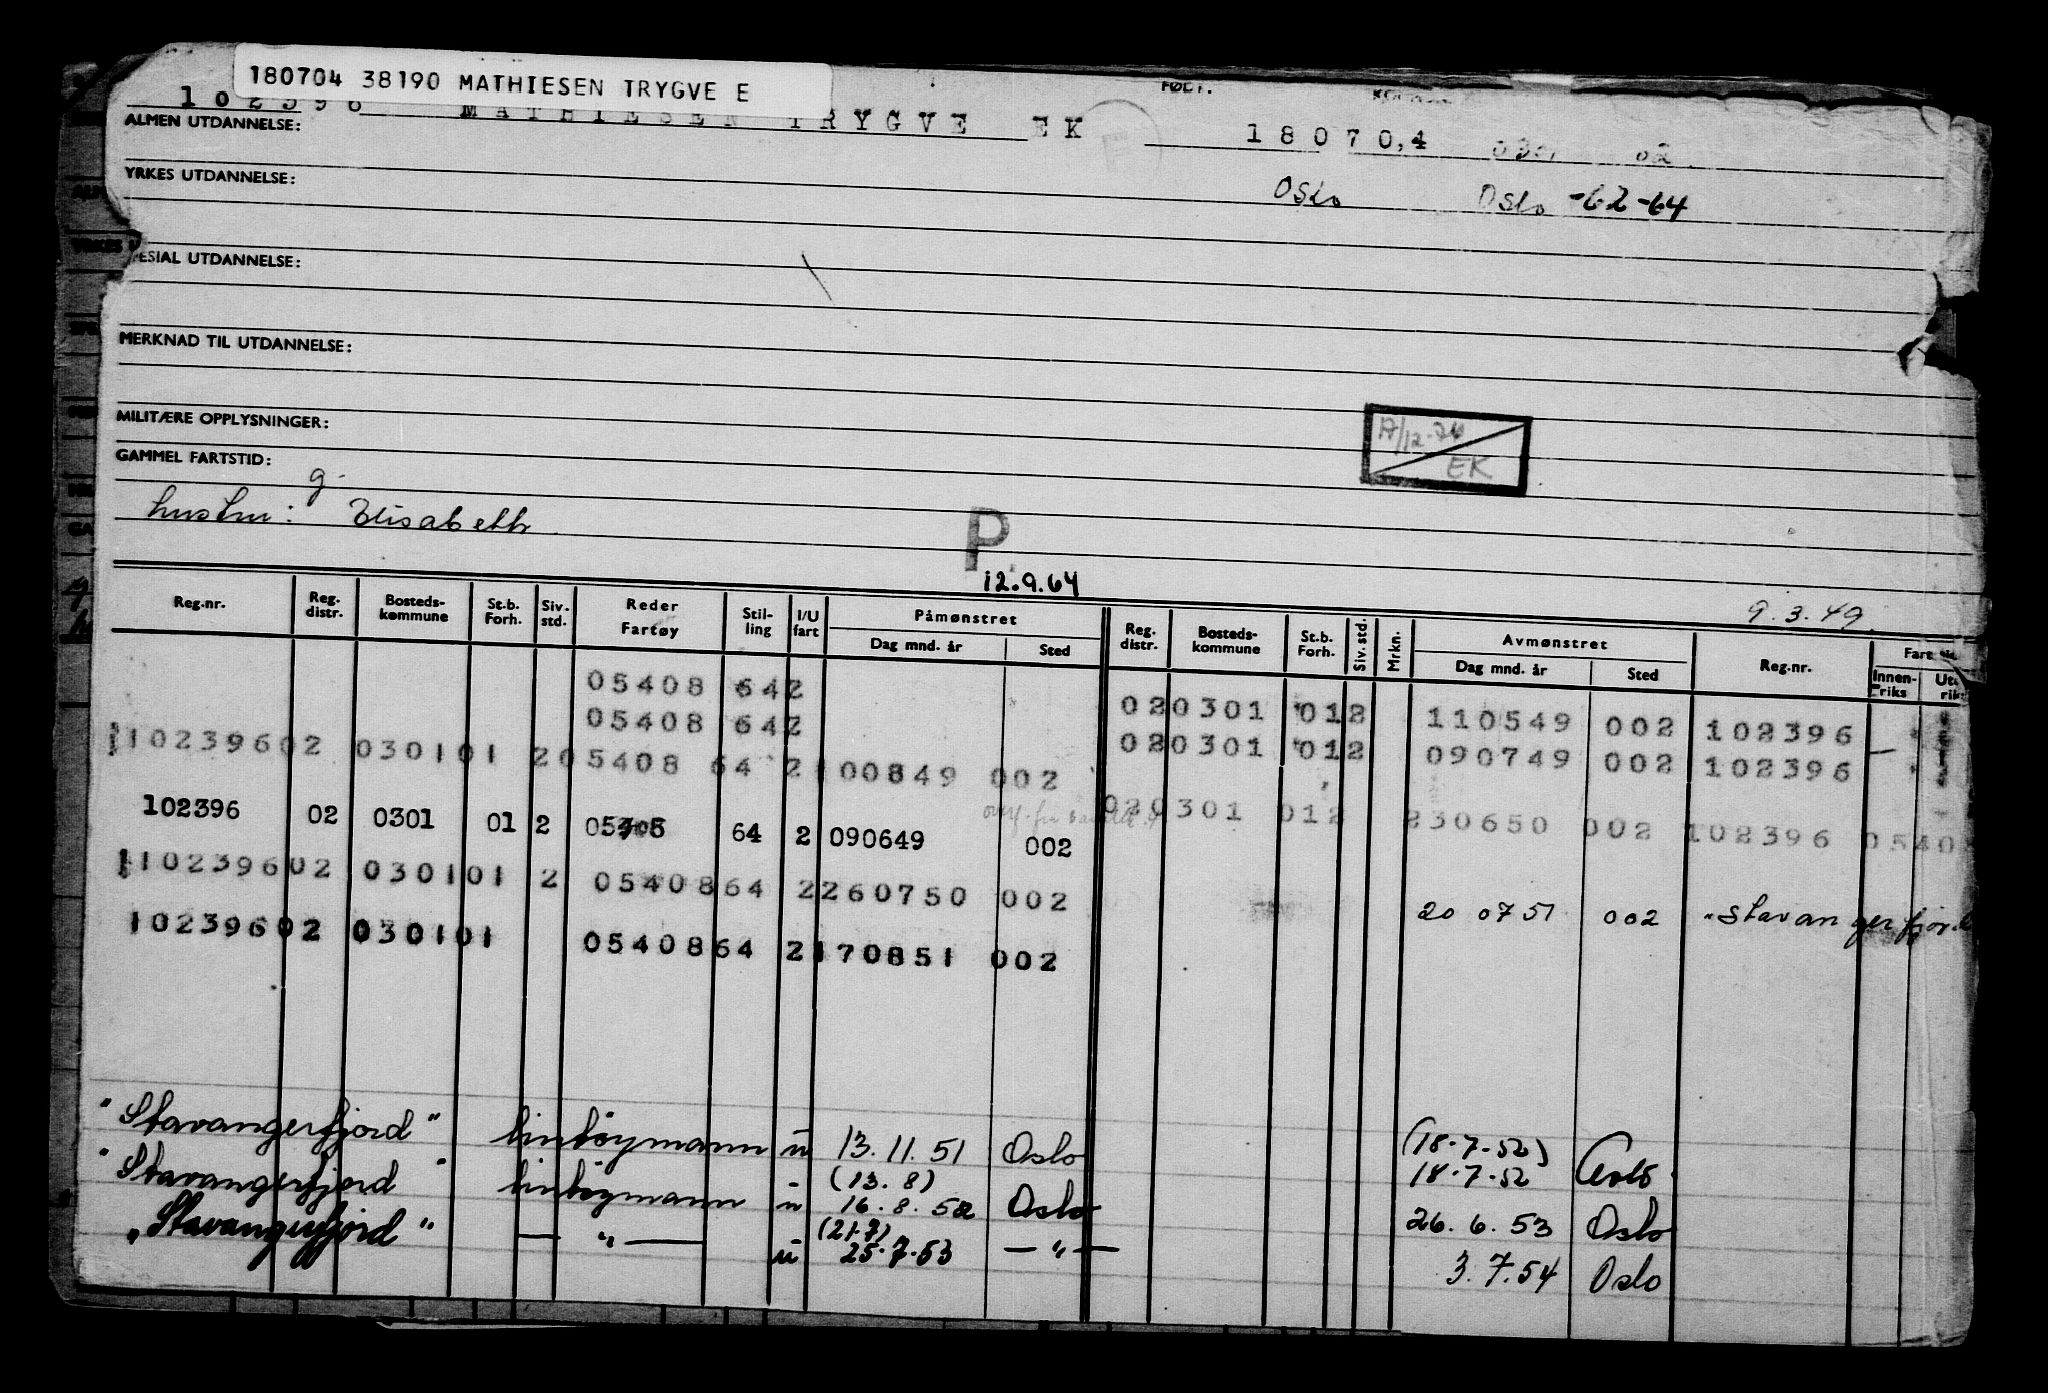 180704 38190 MATHIESEN TRYGVE E
FØDT:
102396 MATHIESEN TRYGVE EK 180704 02
ALMEN UTDANNELSE:
YRKES UTDANNELSE:
Oslo Oslo -62-64
SPESIAL UTDANNELSE:
MERKNAD TIL UTDANNELSE:
MILITÆRE OPPLYSNINGER:
EK
GAMMEL FARTSTID:
g.
hustru: Elisabeth
P
12.9.64
9.3.49.
Reg.nr. Reg. distr. Bosteds-kommune St.b. Forh. Siv. std. Reder Fartøy Stil-ling I/U fart Påmønstret Dag mnd. år Sted Reg. distr. Bosteds-kommune St.b. Forh. Siv. std. Mrkn. Avmønstret Dag mnd. år Sted Reg.nr. Innen-riks
05408 64 2 02 0301 01 2 110549 002 102396
05408 64 2 02 0301 01 2 090749 002 102396
102396 02 0301 01 2 05408 64 2 100849 002 02 0301 01 2 230650 002 102396 0540
102396 02 0301 01 2 64 2 090649 002
102396 02 0301 01 2 05408 64 2 260750 002 20 07 51 002 "Stavangerfjord
102396 02 0301 01 05408 64 2 170851 002
"Stavangerfjord" lintøymann u 13.11.51 Oslo (18.7.52)
18.7.52 Oslo
"Stavangerfjord" lintøymann u (13.8)
16.8.52 Oslo 26.6.53 Oslo
"Stavangerfjord" — " — u (21.7)
25.7.53 — " — 3.7.54 Oslo